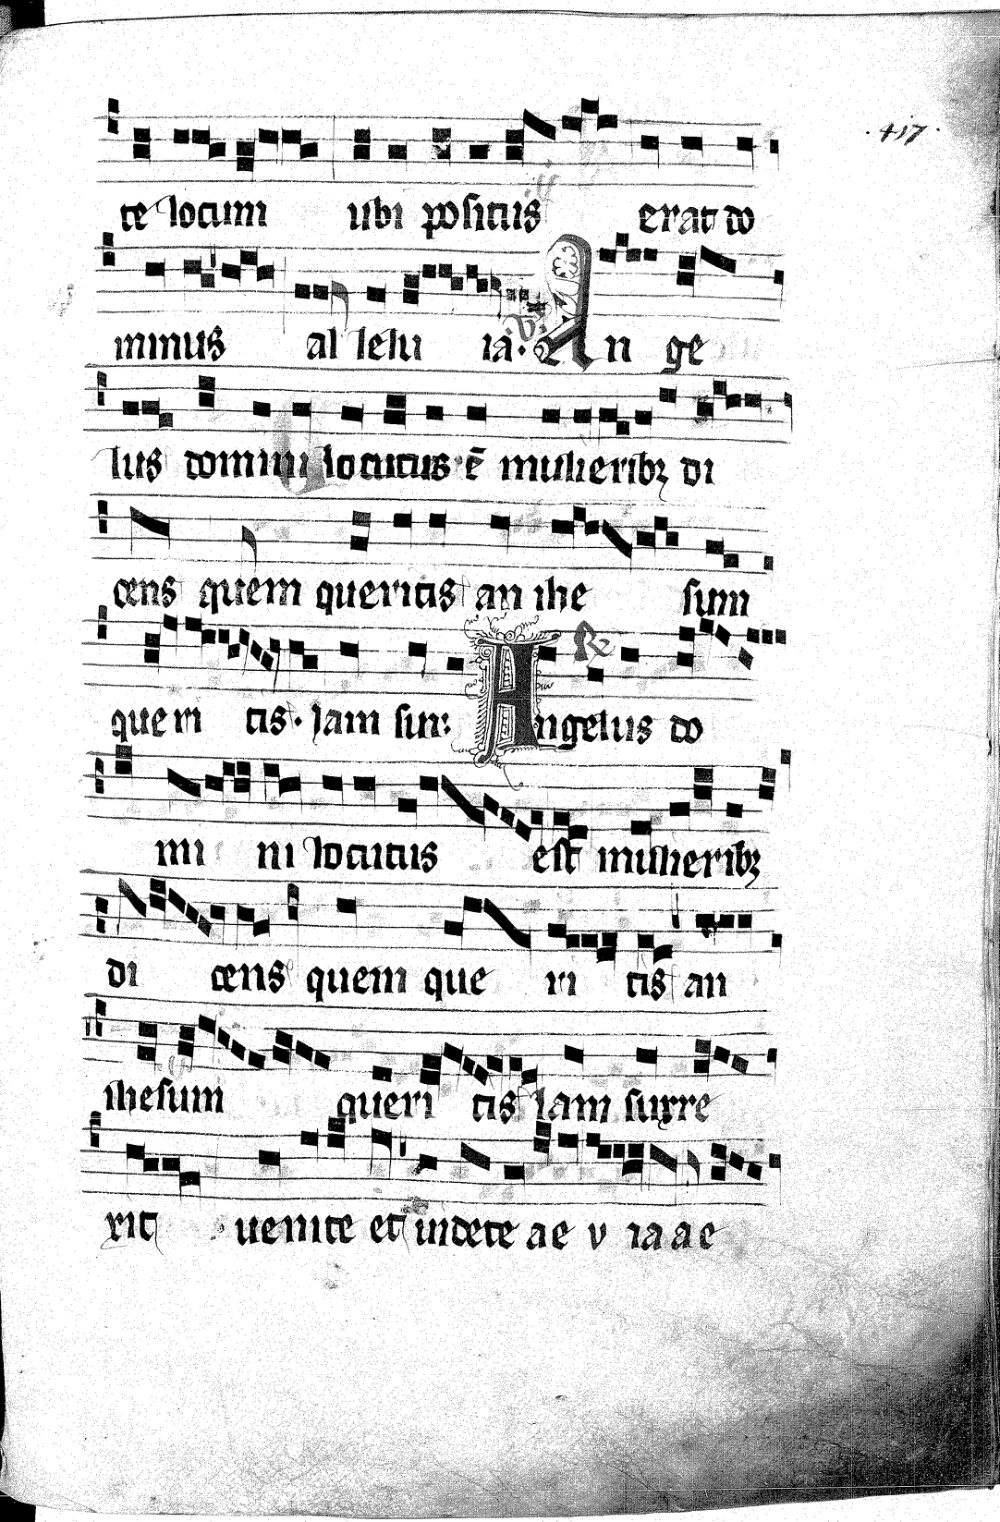 ·417·
te locum ubi positus erat do
minus al lelu ia. ℣. An ge
lus domini locutus ē mulieribꝫ di
cens quem queritis an ihe sum
queri tis. Jam sur: ℟ Angelus do
mi ni locutus est mulieribꝫ
di cens quem que ri tis an
ihesum queri tis Jam surre
xit uenite et uidete ae v ia a e